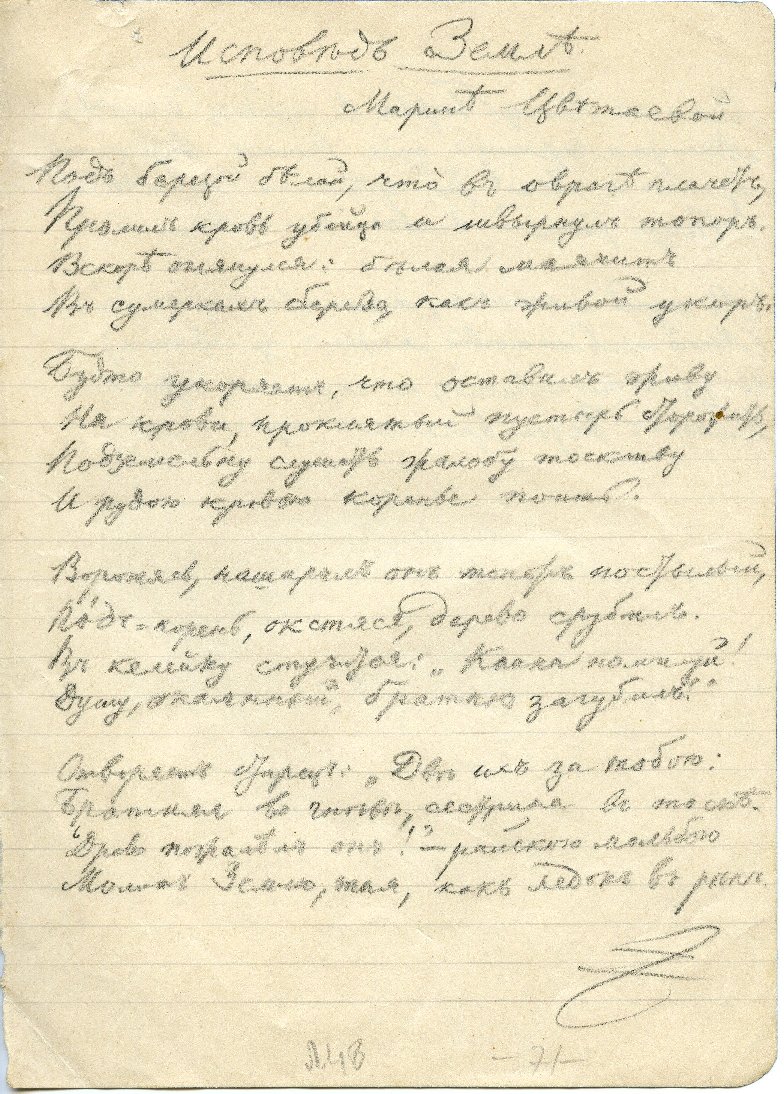 Исповѣдь Землѣ.
Маринѣ Цвѣтаевой
Подъ березой бѣлой, что въ оврагѣ плачетъ,
Пролилъ кровь убійца и швырнулъ топоръ.
Вскорѣ оглянулся: бѣлая маячитъ
Въ сумеркахъ береза какъ живой укоръ.
Будто укоряетъ, что оставилъ живу
На крови, проклятый пустырь сторожить,
Подземельну слушать жалобу тоскливу
И рудою кровью коренье поить.
Воротяся, нашарилъ онъ топоръ постылый,
Подъ-корень, окстяся, дерево срубилъ.
Въ келейку стучится: „Каина помилуй!
Душу, окаянный, братнюю загубилъ!"
Отверзаетъ старецъ: „Двѣ ихъ за тобою:
Братняя во гнѣвѣ, сестрина въ тоскѣ.
Древо пожалѣлъ онъ!" – райскою мольбою
Молитъ Землю, тая, какъ ледокъ въ рѣкѣ.
– 71 –